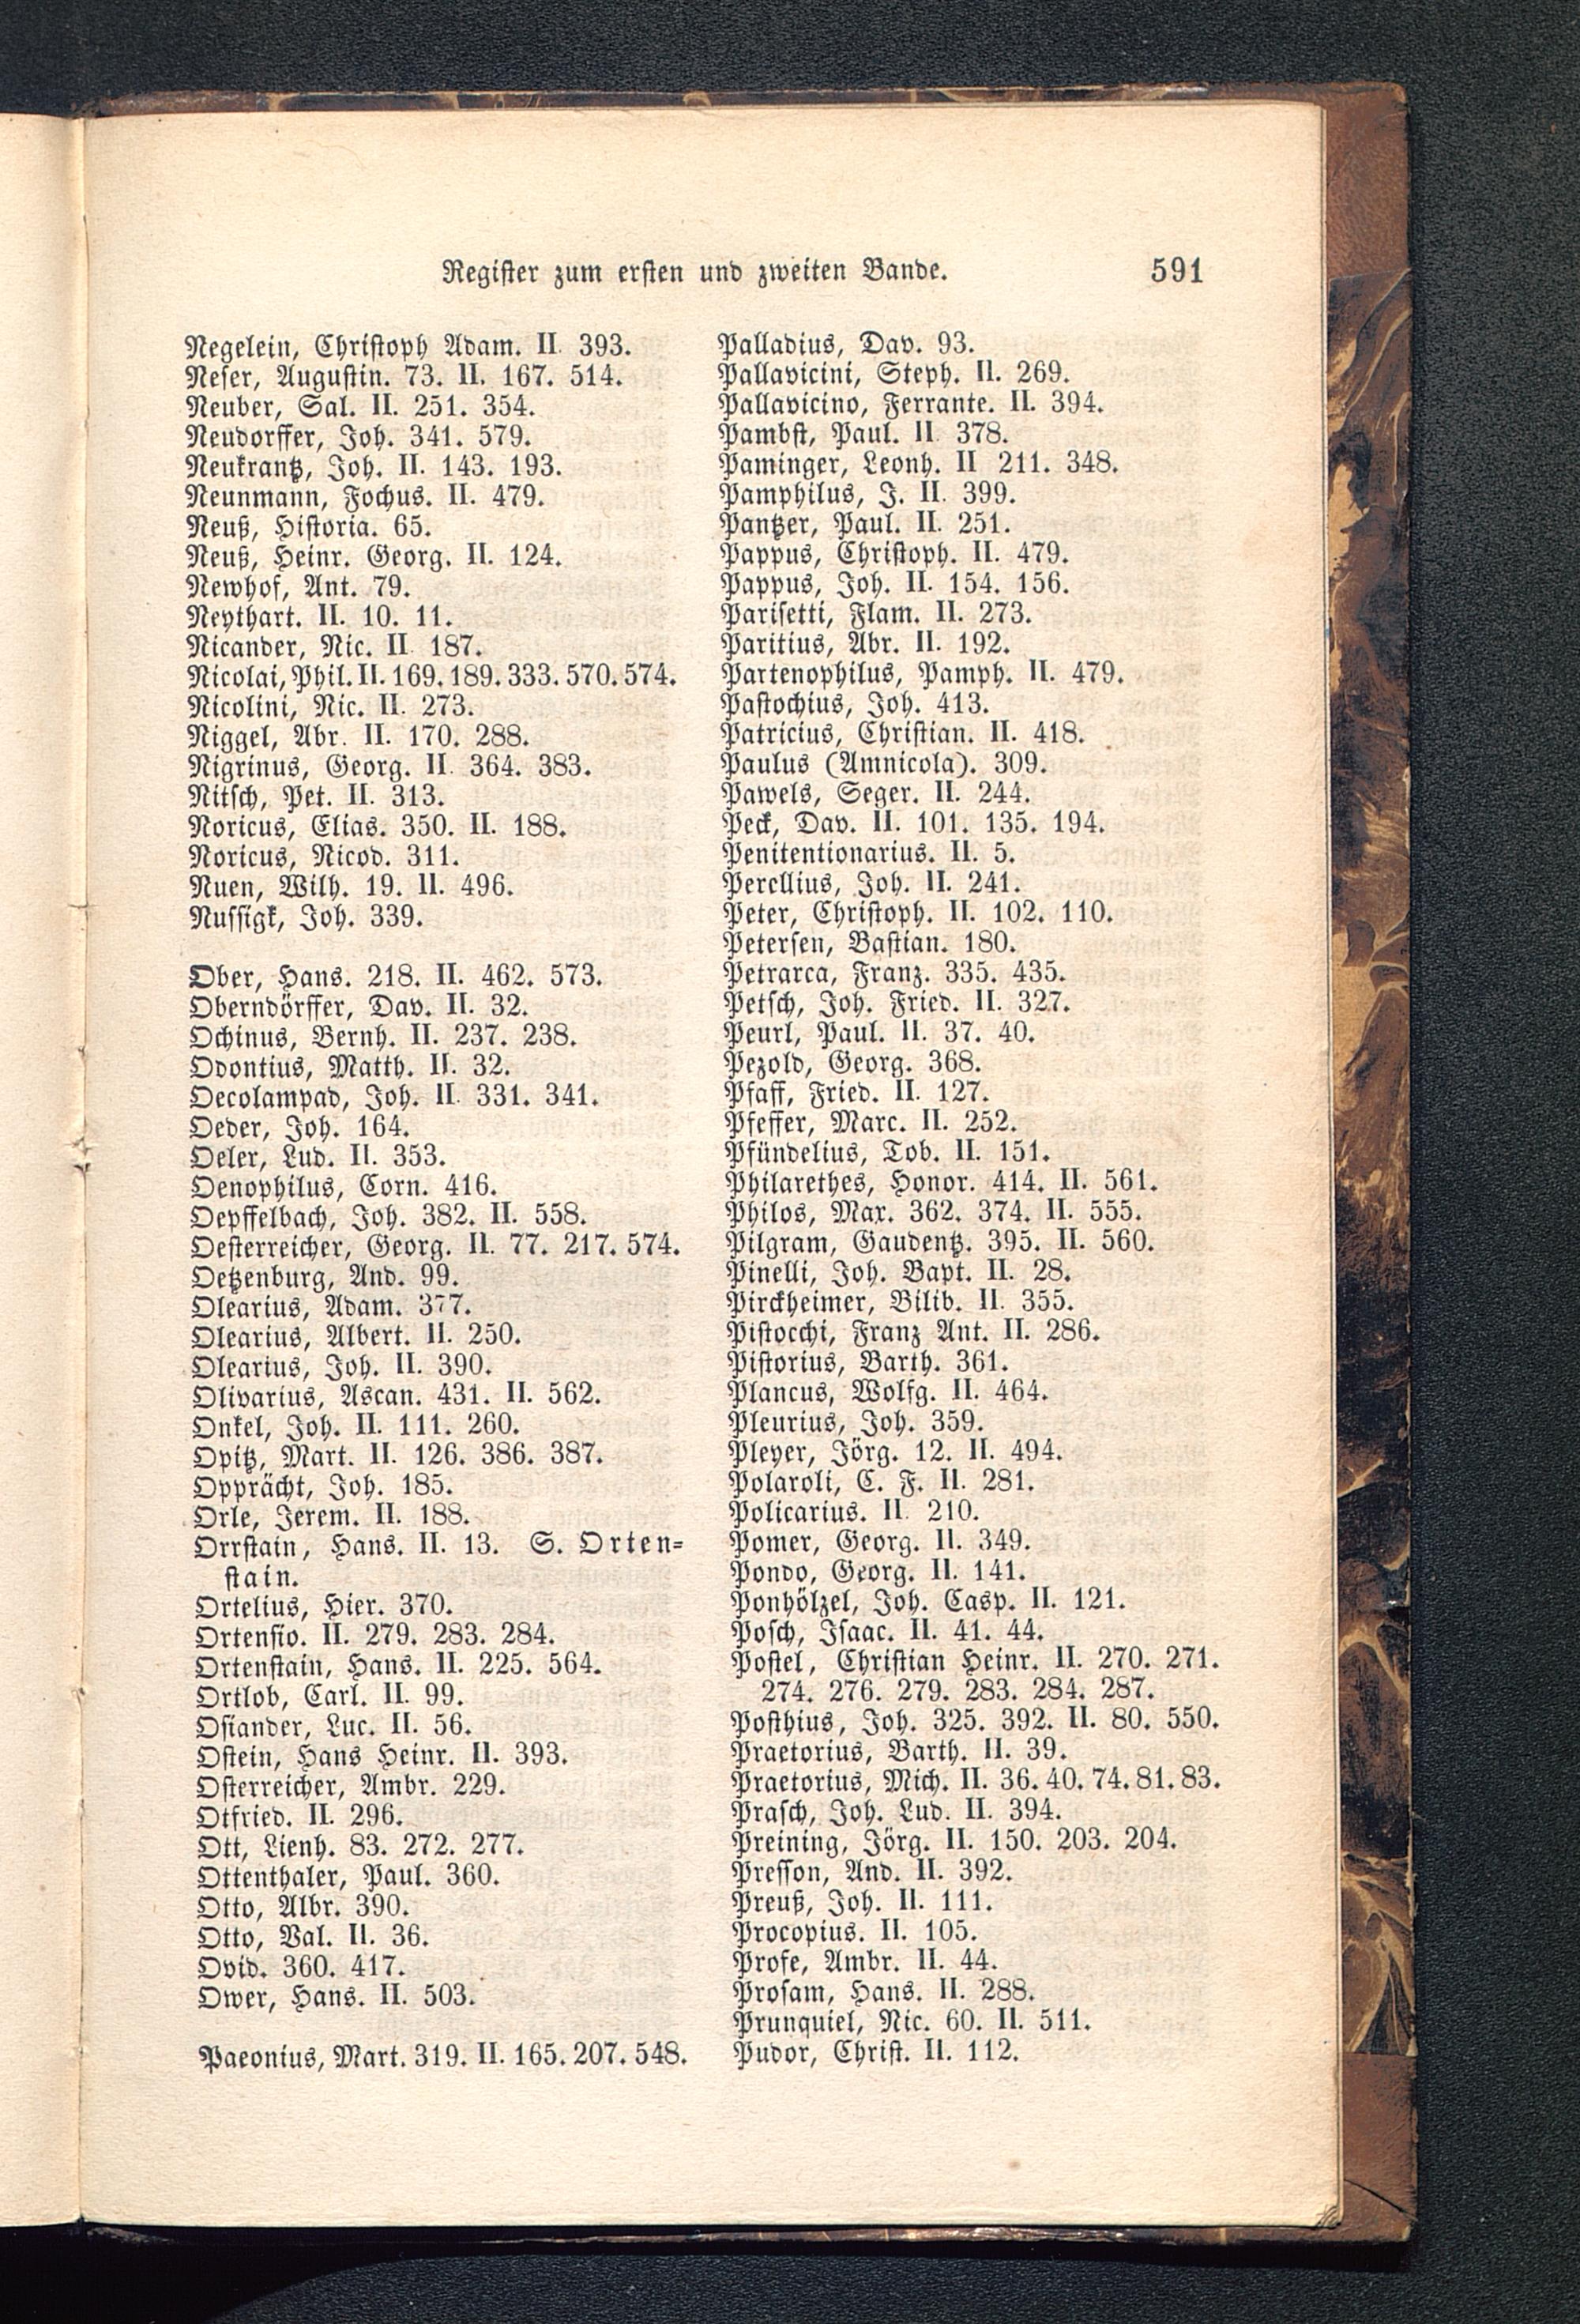 Register zum ersten und zweiten Bande. 591
Negelein, Christoph Adam. II. 393.
Neser, Augustin. 73. II. 167. 514.
Neuber, Sal. II. 251. 354.
Neudorffer, Joh. 341. 579.
Neukrantz, Joh. II. 143. 193.
Neunmann, Fochus. II. 479.
Neuß, Historia. 65.
Neuß, Heinr. Georg. II. 124.
Newhof, Ant. 79.
Neythart. II. 10. 11.
Nicander, Nic. II 187.
Nicolai, Phil. II. 169. 189. 333. 570. 574.
Nicolini, Nic. II. 273.
Niggel, Abr. II. 170. 288.
Nigrinus, Georg. II. 364. 383.
Nitsch, Pet. II. 313.
Noricus, Elias. 350. II. 188.
Noricus, Nicod. 311.
Nuen, Wilh. 19. II. 496.
Nussigk, Joh. 339.
Ober, Hans. 218. II. 462. 573.
Oberndörffer, Dav. II. 32.
Ochinus, Bernh. II. 237. 238.
Odontius, Matth. II. 32.
Oecolampad, Joh. II. 331. 341.
Oeder, Joh. 164.
Oeler, Lud. II. 353.
Oenophilus, Corn. 416.
Oepffelbach, Joh. 382. II. 558.
Oesterreicher, Georg. II. 77. 217. 574.
Oetzenburg, And. 99.
Olearius, Adam. 377.
Olearius, Albert. II. 250.
Olearius, Joh. II. 390.
Olivarius, Ascan. 431. II. 562.
Onkel, Joh. II. 111. 260.
Opitz, Mart. II. 126. 386. 387.
Opprächt, Joh. 185.
Orle, Jerem. II. 188.
Orrstain, Hans. II. 13. S. Orten-
stain.
Ortelius, Hier. 370.
Ortensio. II. 279. 283. 284.
Ortenstain, Hans. II. 225. 564.
Ortlob, Carl. II. 99.
Osiander, Luc. II. 56.
Ostein, Hans Heinr. II. 393.
Osterreicher, Ambr. 229.
Otfried. II. 296.
Ott, Lienh. 83. 272. 277.
Ottenthaler, Paul. 360.
Otto, Albr. 390.
Otto, Val. II. 36.
Ovid. 360. 417.
Ower, Hans. II. 503.
Paeonius, Mart. 319. II. 165. 207. 548.
Palladius, Dav. 93.
Pallavicini, Steph. II. 269.
Pallavicino, Ferrante. II. 394.
Pambst, Paul. II 378.
Paminger, Leonh. II 211. 348.
Pamphilus, J. II. 399.
Pantzer, Paul. II. 251.
Pappus, Christoph. II. 479.
Pappus, Joh. II. 154. 156.
Parisetti, Flam. II. 273.
Paritius, Abr. II. 192.
Partenophilus, Pamph. II. 479.
Pastochius, Joh. 413.
Patricius, Christian. II. 418.
Paulus (Amnicola). 309.
Pawels, Seger. II. 244.
Peck, Dav. II. 101. 135. 194.
Penitentionarius. II. 5.
Perellius, Joh. II. 241.
Peter, Christoph. II. 102. 110.
Petersen, Bastian. 180.
Petrarca, Franz. 335. 435.
Petsch, Joh. Fried. II. 327.
Peurl, Paul. II. 37. 40.
Pezold, Georg. 368.
Pfaff, Fried. II. 127.
Pfeffer, Marc. II. 252.
Pfündelius, Tob. II. 151.
Philarethes, Honor. 414. II. 561.
Philos, Max. 362. 374. II. 555.
Pilgram, Gaudentz. 395. II. 560.
Pinelli, Joh. Bapt. II. 28.
Pirckheimer, Bilib. II. 355.
Pistocchi, Franz Ant. II. 286.
Pistorius, Barth. 361.
Plancus, Wolfg. II. 464.
Pleurius, Joh. 359.
Pleyer, Jörg. 12. II. 494.
Polaroli, C. F. II. 281.
Policarius. II. 210.
Pomer, Georg. II. 349.
Pondo, Georg. II. 141.
Ponhölzel, Joh. Casp. II. 121.
Posch, Isaac. II. 41. 44.
Postel, Christian Heinr. II. 270. 271.
274. 276. 279. 283. 284. 287.
Posthius, Joh. 325. 392. II. 80. 550.
Praetorius, Barth. II. 39.
Praetorius, Mich. II. 36. 40. 74. 81. 83.
Prasch, Joh. Lud. II. 394.
Preining, Jörg. II. 150. 203. 204.
Presson, And. II. 392.
Preuß, Joh. II. 111.
Procopius. II. 105.
Profe, Ambr. II. 44.
Prosam, Hans. II. 288.
Prunquiel, Nic. 60. II. 511.
Pudor, Christ. II. 112.